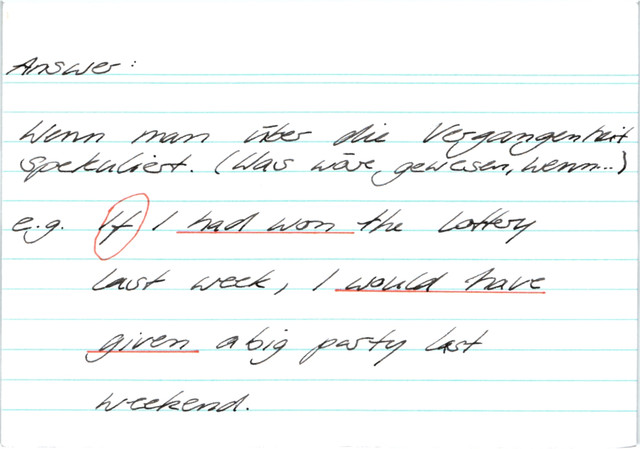 Answer:
Wenn man über die Vergangenheit
spekuliert. (Was wäre gewesen, wenn...)
e.g. If I had won the lottery
last week, I would have
given a big party last
weekend.